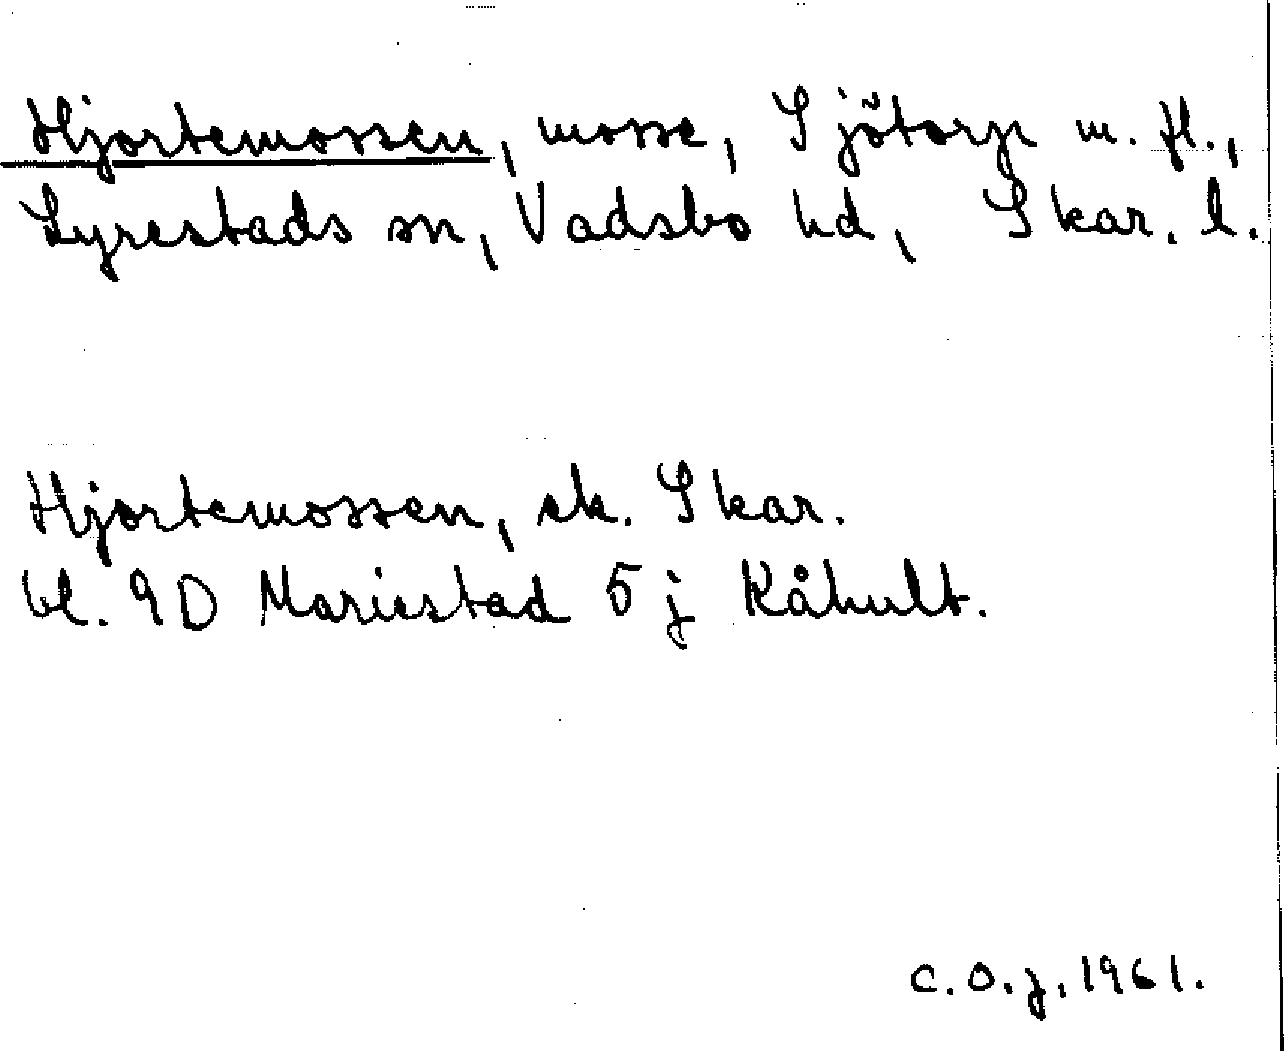 Hjortemossen, mosse, Sjötorp m. fl.,
Lyrestads sn, Vadsbo hd, Skar. l.
Hjortemossen, ek. Skar.
bl. 9D Mariestad 5 j Kåhult.
C.O.J. 1961.